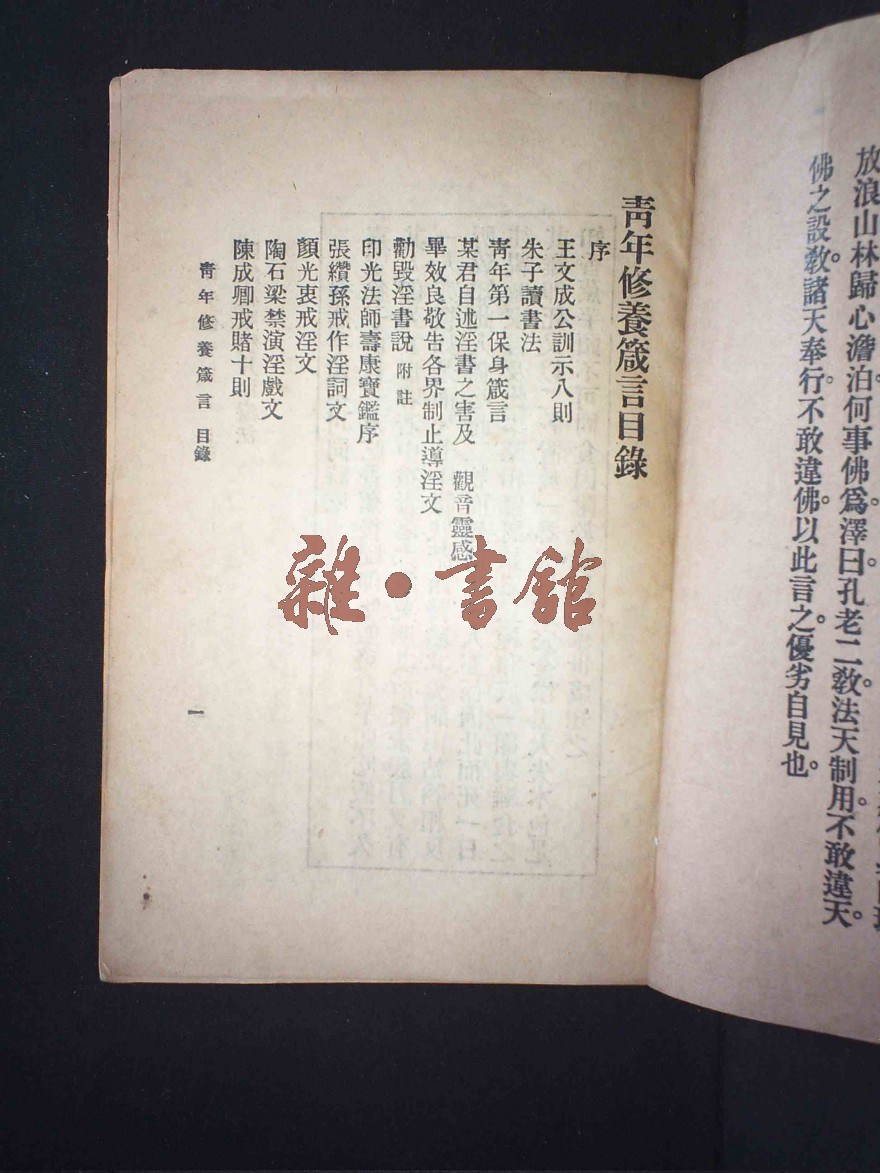 放浪山林歸心澹泊。何事佛爲。澤曰。孔老二敎。法天制用。不敢違天。
佛之設敎。諸天奉行。不敢違佛。以此言之。優劣自見也。
靑年修養箴言目錄
序
王文成公訓示八則
朱子讀書法
靑年第一保身箴言
某君自述淫書之害及 觀音靈感
畢效良敬告各界制止導淫文
勸毀淫書說 附註
印光法師壽康寶鑑序
張纘孫戒作淫詞文
顏光衷戒淫文
陶石梁禁演淫戲文
陳成卿戒賭十則
靑年修養箴言 目錄
一
雜·書館